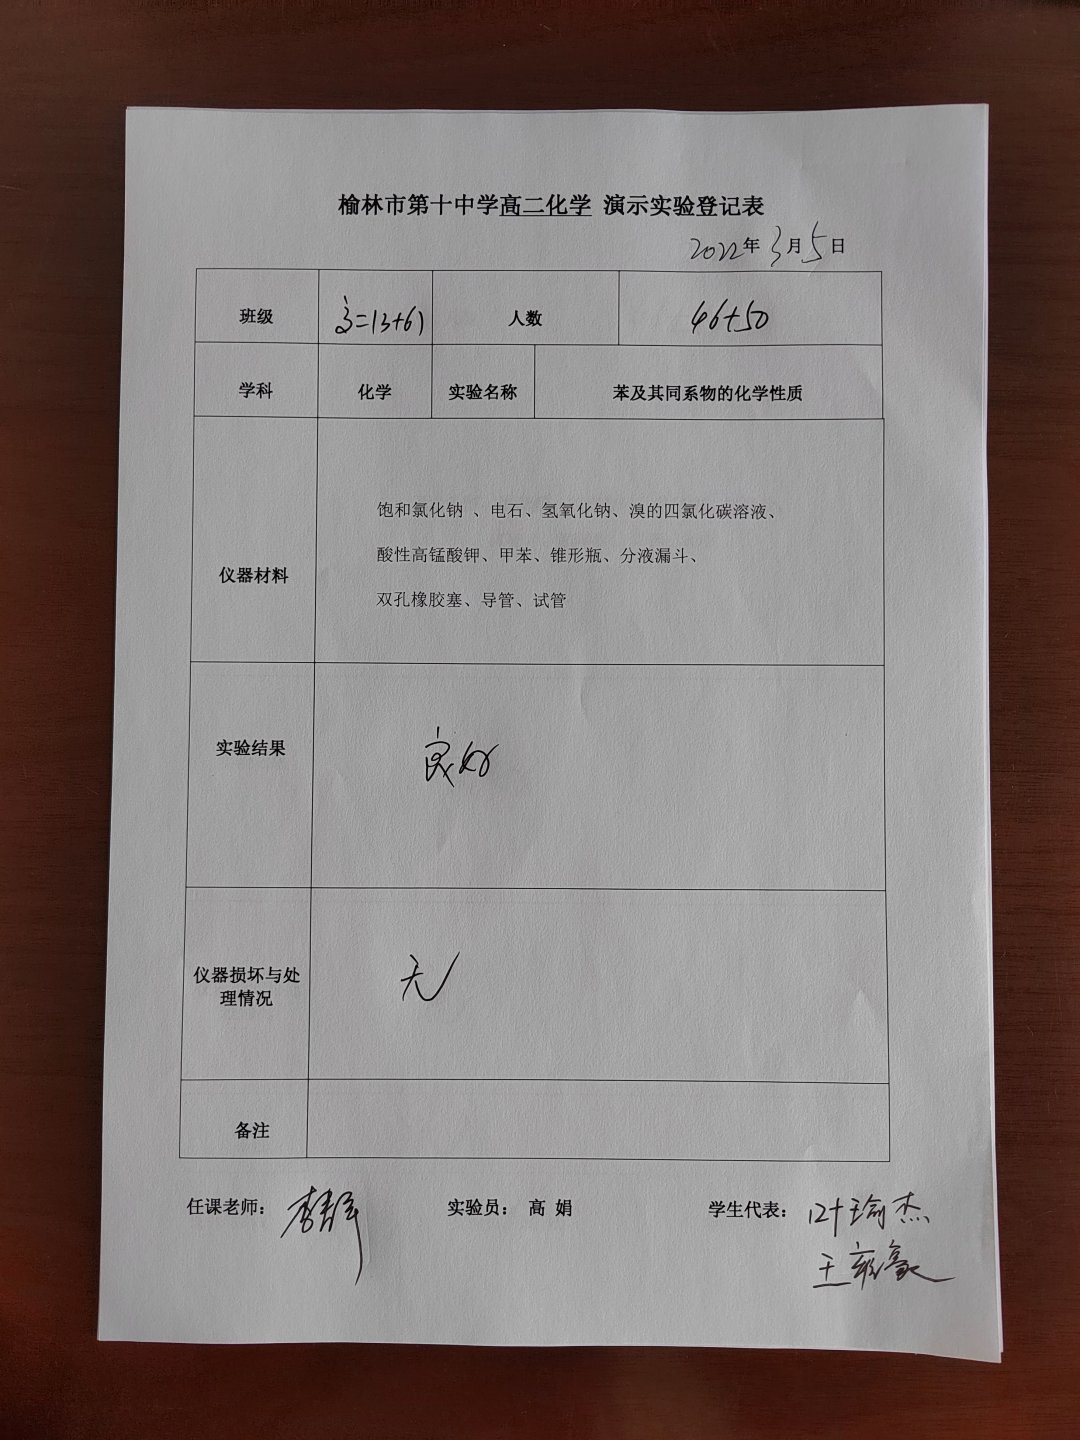 榆林市第十中学高二化学 演示实验登记表
2022年3月5日
班级 高二(3+6) 人数 46+50
学科 化学 实验名称 苯及其同系物的化学性质
饱和氯化钠 、电石、氢氧化钠、溴的四氯化碳溶液、
酸性高锰酸钾、甲苯、锥形瓶、分液漏斗、
仪器材料
双孔橡胶塞、导管、试管
实验结果 良好
仪器损坏与处
理情况
无
备注
任课老师： 李静 实验员： 高 娟 学生代表： 叶瑜杰
王